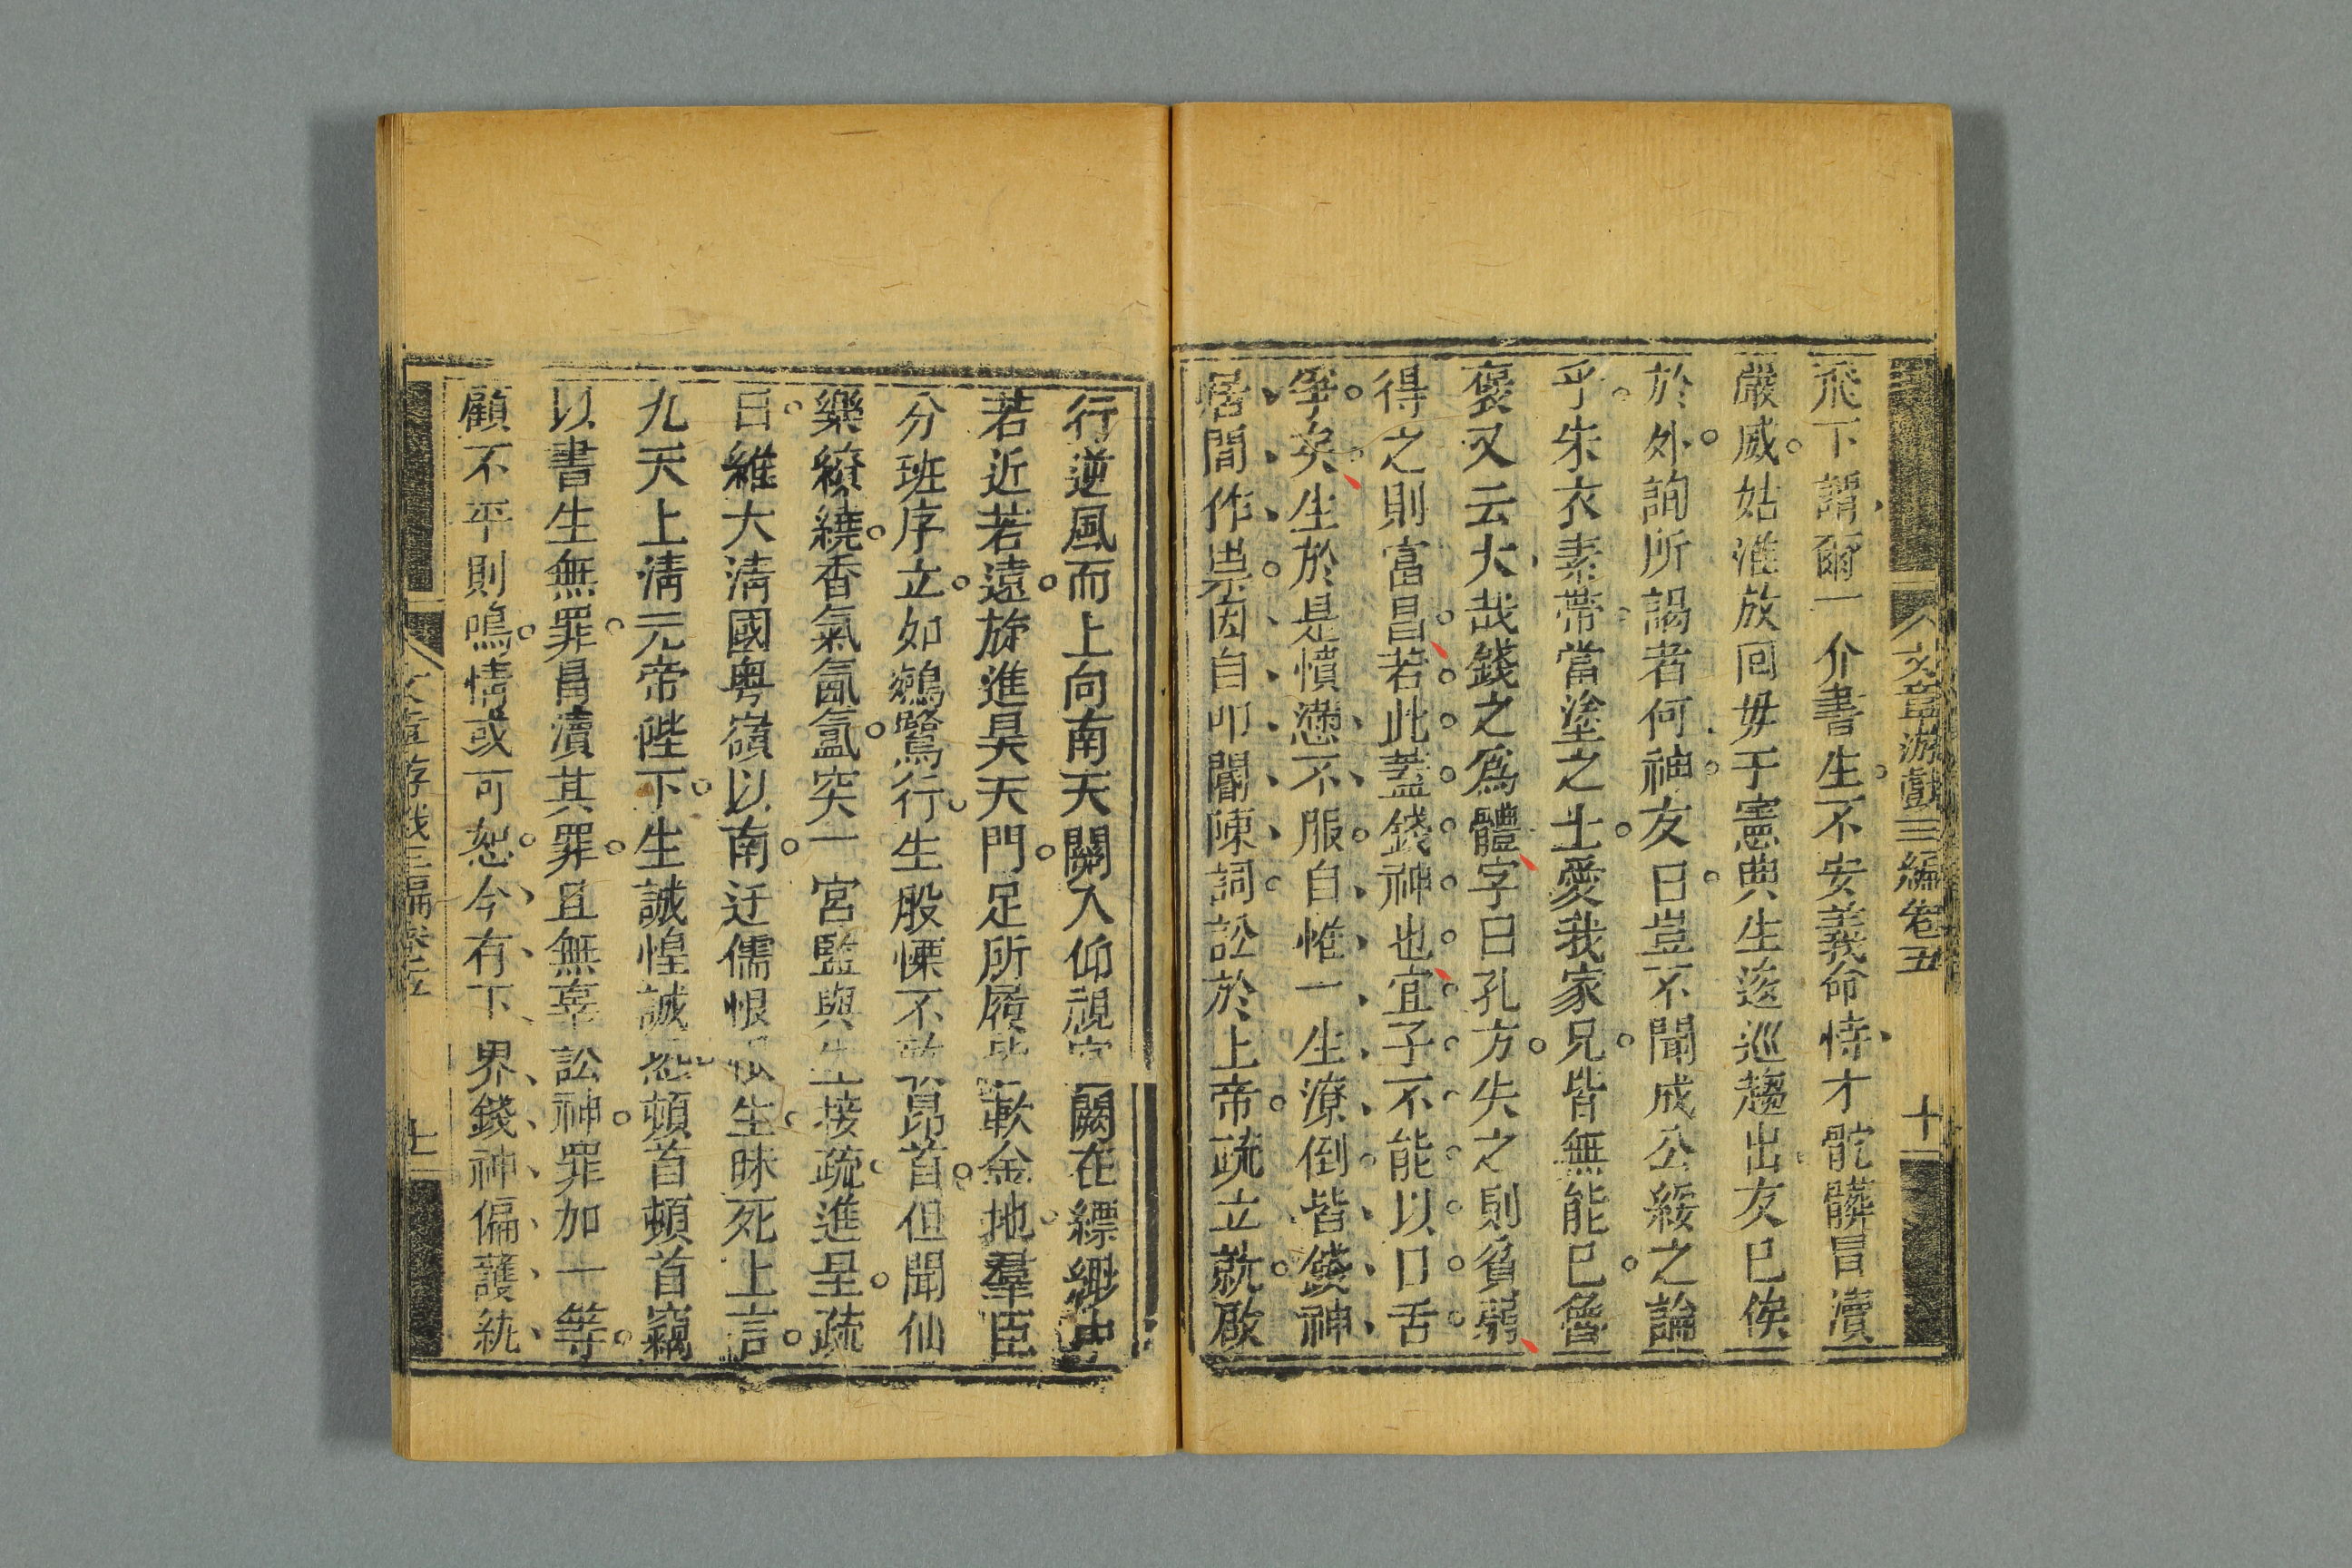 文章游戲三編卷五 十
飛下謂爾一介書生不安義命恃才骯髒冒瀆
嚴威姑准放回毋于憲典生逡巡趨出友已俟
於外詢所謁者何神友曰豈不聞成公綏之論
乎朱衣素帶當塗之士愛我家兄皆無能已魯
褒又云大哉錢之為體字曰孔方失之則貧弱
得之則富昌若此蓋錢神也宜子不能以口舌
爭矣生於是憤懑不服自惟一生潦倒皆錢神
居間作祟因自叩閽陳詞訟於上帝疏立就啟
行逆風而上向南天關入仰視 闕在縹緲中
若近若遠旋進昊天門足所履 軟金地羣臣
分班序立如鵷鷺行生股慄不敢昂首但聞仙
樂繚繞香氣氤氳突一宮監與生接疏進呈疏
曰維大清國粵嶺以南迂儒恨 生昧死上言
九天上淸元帝陛下生誠惶誠恐頓首頓首竊
以書生無罪冒瀆其罪且無辜訟神罪加一等
顧不平則鳴情或可恕今有下界錢神偏護統
文章游戲三編卷五 十一